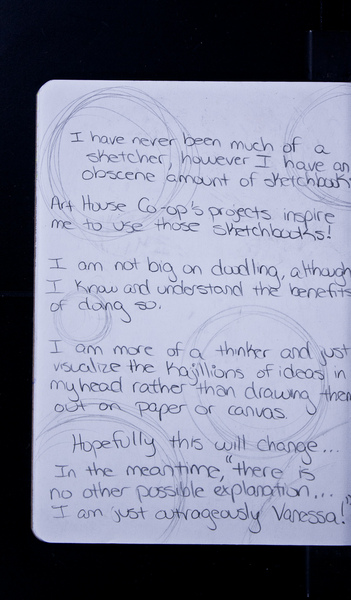 I have never been much of a
sketcher, however I have an
obscene amount of sketchbooks
Art House Co-op's projects inspire
me to use those sketchbooks!
I am not big on doodling, although
I know and understand the benefits
of doing so.
I am more of a thinker and just
visualize the kajillions of ideas in
my head rather than drawing them
out on paper or canvas
Hopefully this will change...
In the meantime, "there is
no other possible explanation...
I am just outrageously Vanessa!"